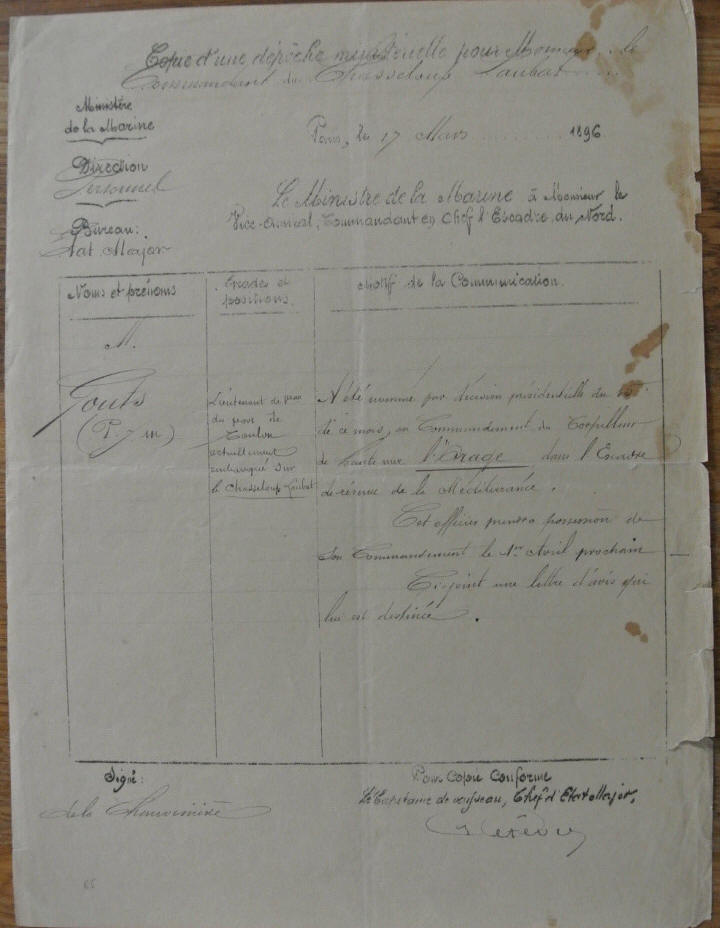 Copie d'une dépêche ministérielle pour Monsieur le
Commandant du Chasseloup Laubat
Ministère
de la Marine
Paris, le 17 Mars 1896
Direction
Personnel
Le Ministre de la Marine à Monsieur le
Vice-Amiral, Commandant en Chef l'Escadre du Nord.
Bureau:
Etat Major
Noms et prénoms
Grades et
positions
Motif de la Communication
M.
(P. J. M)
Lieutenant de
du port de
Toulon
actuellement
embarqué sur
le Chasseloup-Laubat
A été nommé par décision présidentielle du 15
de ce mois, au Commandement du Torpilleur
de haute mer l'Orage dans l'Escadre
de réserve de la Méditerranée.
Cet officier prendra possession de
son Commandement le 1er Avril prochain
Ci-joint une lettre d'avis qui
lui est destinée.
Signé:
de la
Pour Copie Conforme
Le Capitaine de vaisseau, Chef d'Etat Major,
65